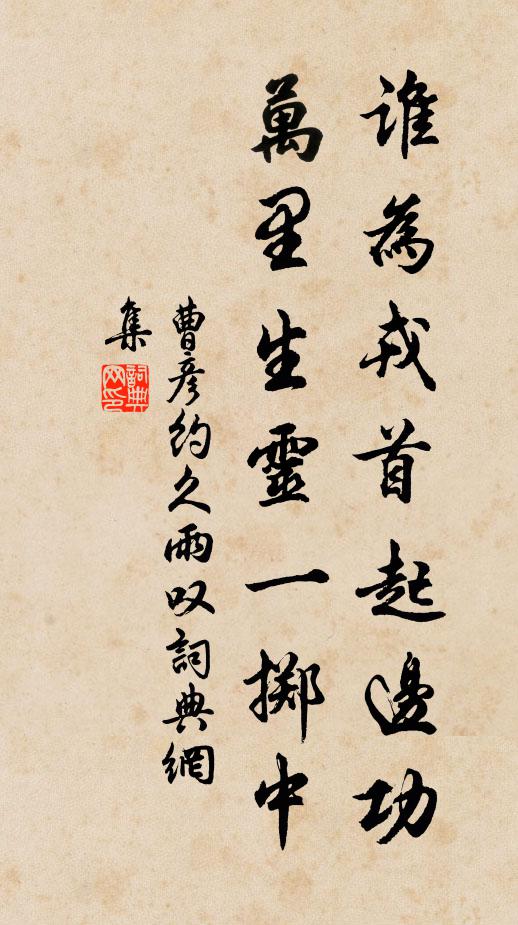 誰為戎首起邊功
萬里生靈一擲中
曹彦約久雨叹詞典網
集
詞典
网印